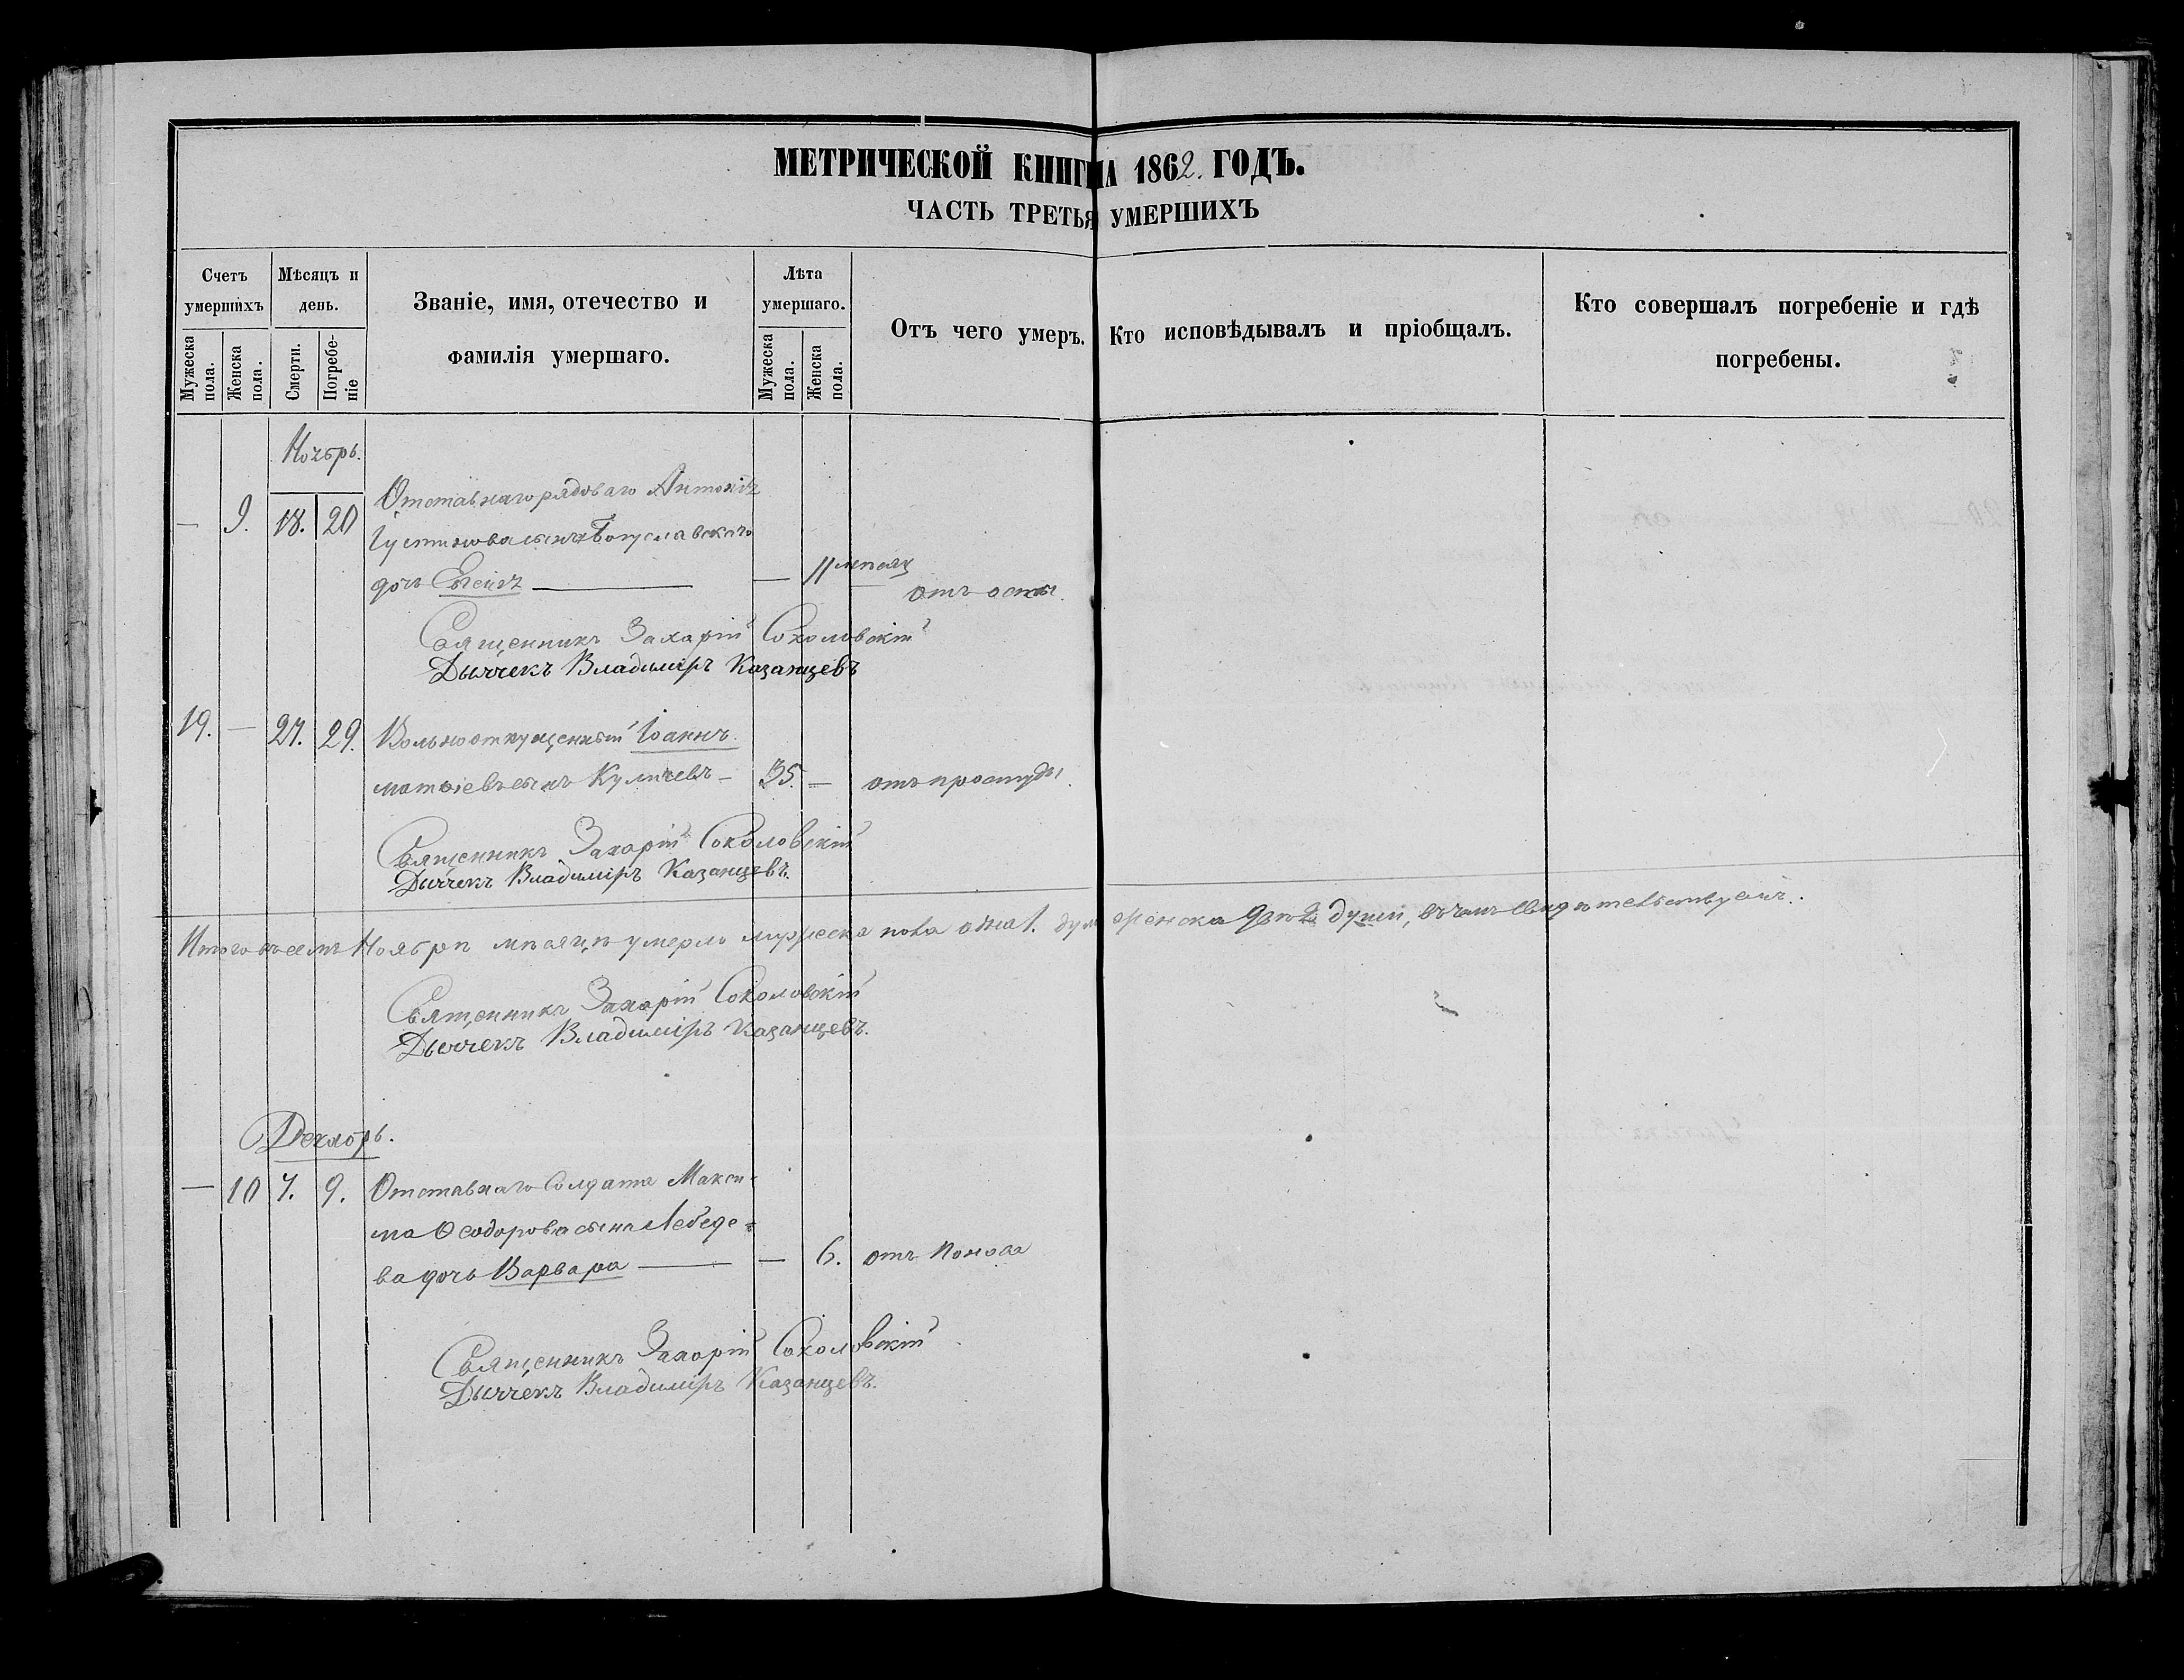 МЕТРИЧЕСКОЙ КНИГ НА 1862. ГОДЪ.
ЧАСТЬ ТРЕТЬЯ УМЕРШИХЪ
Счетъ умершихъ
Мѣсяцъ и день.
Званіе, имя, отечество и фамилія умершаго.
Лѣта умершаго.
Отъ чего умеръ.
Кто исповѣдывалъ и пріобщалъ.
Кто совершалъ погребеніе и гдѣ погребены.
Мужеска пола.
Женска пола.
Смерти.
Погребеніе
Мужеска пола.
Женска пола.
Ноябрь.
— 9. 18. 20 Отставнаго рядоваго Антонія
Густинова сына Богуславскаго
дочь — 11 мѣсяц отъ оспы.
Священникъ Захарій Соколовскій
Дьячекъ Владиміръ Казанцевъ
19. — 27. 29. Вольноотпущенный Іоаннъ
матѳіевъ сынъ Куличевъ — 35. — отъ простуды.
Священникъ Захарій Соколовскій
Дьячекъ Владиміръ Казанцевъ.
Итого въ семъ Ноябрѣ мѣсяцѣ умерло мужеска пола одна 1. душ женска двѣ 2 души, въ чемъ свидѣтельствуемъ.
Священникъ Захарій Соколовскій
Дьячекъ Владиміръ Казанцевъ.
Декабрь.
— 10 7. 9. Отставнаго Солдата Макси-
ма Ѳеодорова сына Лебеде-
ва дочь Варвара — — 6. отъ поноса
Священникъ Захарій Соколовскій
Дьячекъ Владиміръ Казанцевъ.